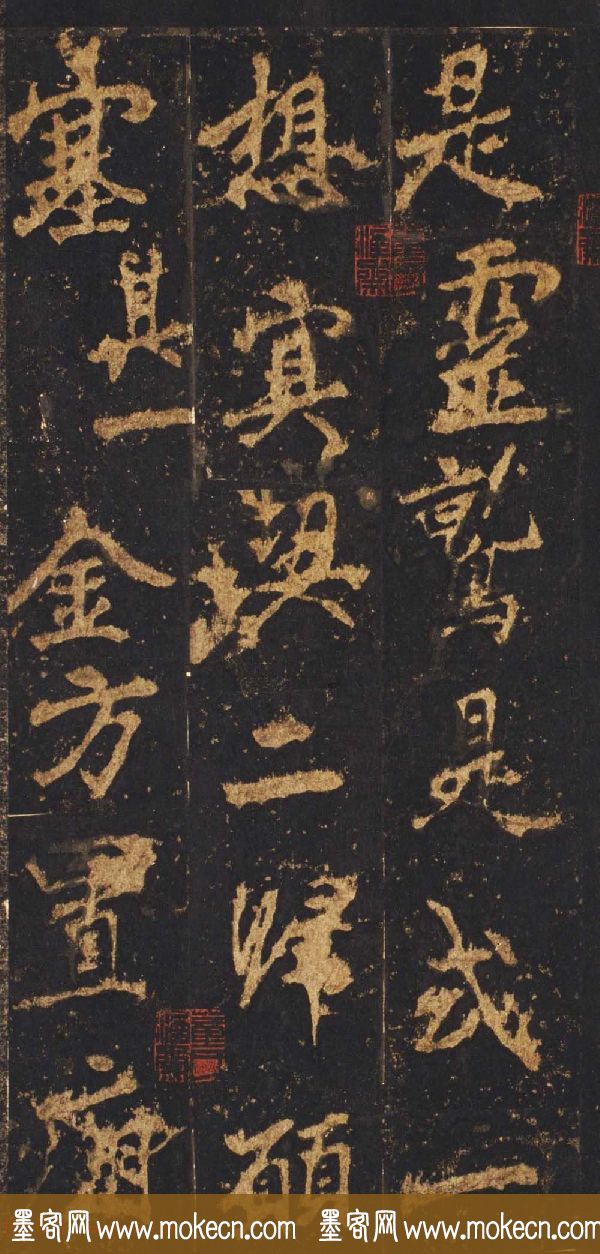 是靈鷲式一
想二歸
塞其一金方置
墨客网 www.mokecn.com 墨客网 www.mokecn.com